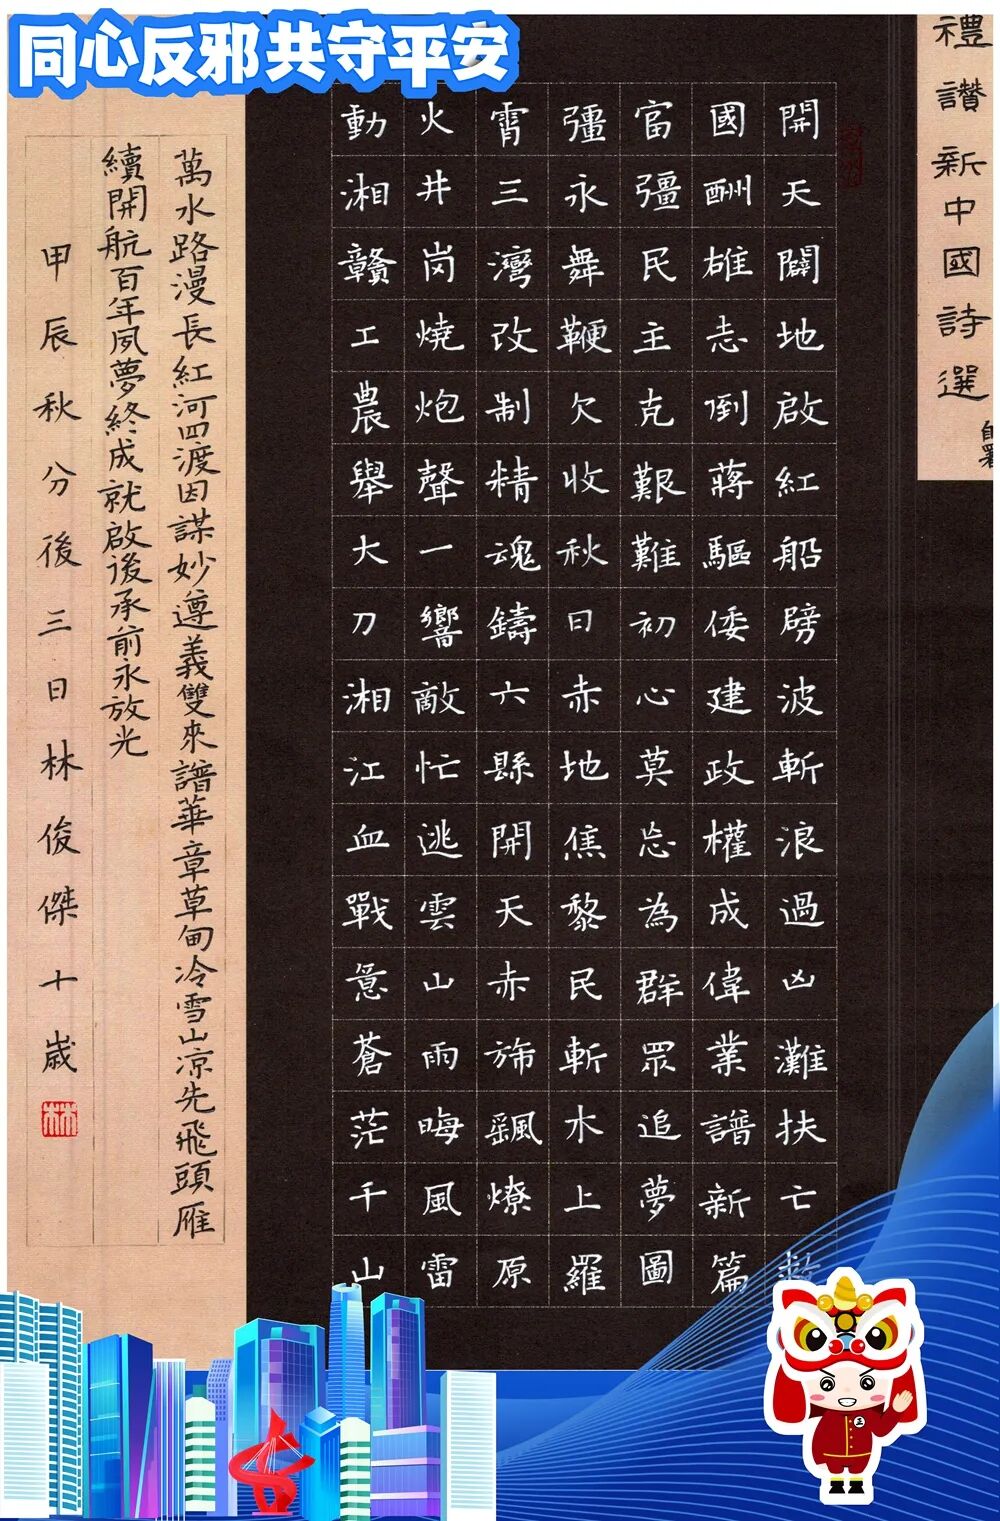 同心反邪共守平安
禮讚新中國詩選
自署
開天闢地啟紅船劈波斬浪過凶灘扶亡救
國酬雄志倒蔣驅倭建政權成偉業譜新篇
富彊民主克艱難初心莫忘為群眾追夢圖
彊永舞鞭欠收秋日赤地焦黎民斬木上羅
霄三灣改制精魂鑄六縣開天赤斾飄燎原
火井岗燒炮聲一響敵忙逃雲山雨晦風雷
動湘贛工農舉大刀湘江血戰意蒼茫千山
萬水路漫長紅河四渡因謀妙遵義雙來譜華章草甸冷雪山凉先飛頭雁
續開航百年夙夢終成就啟後承前永放光
甲辰秋分後三日林俊傑十歲
林